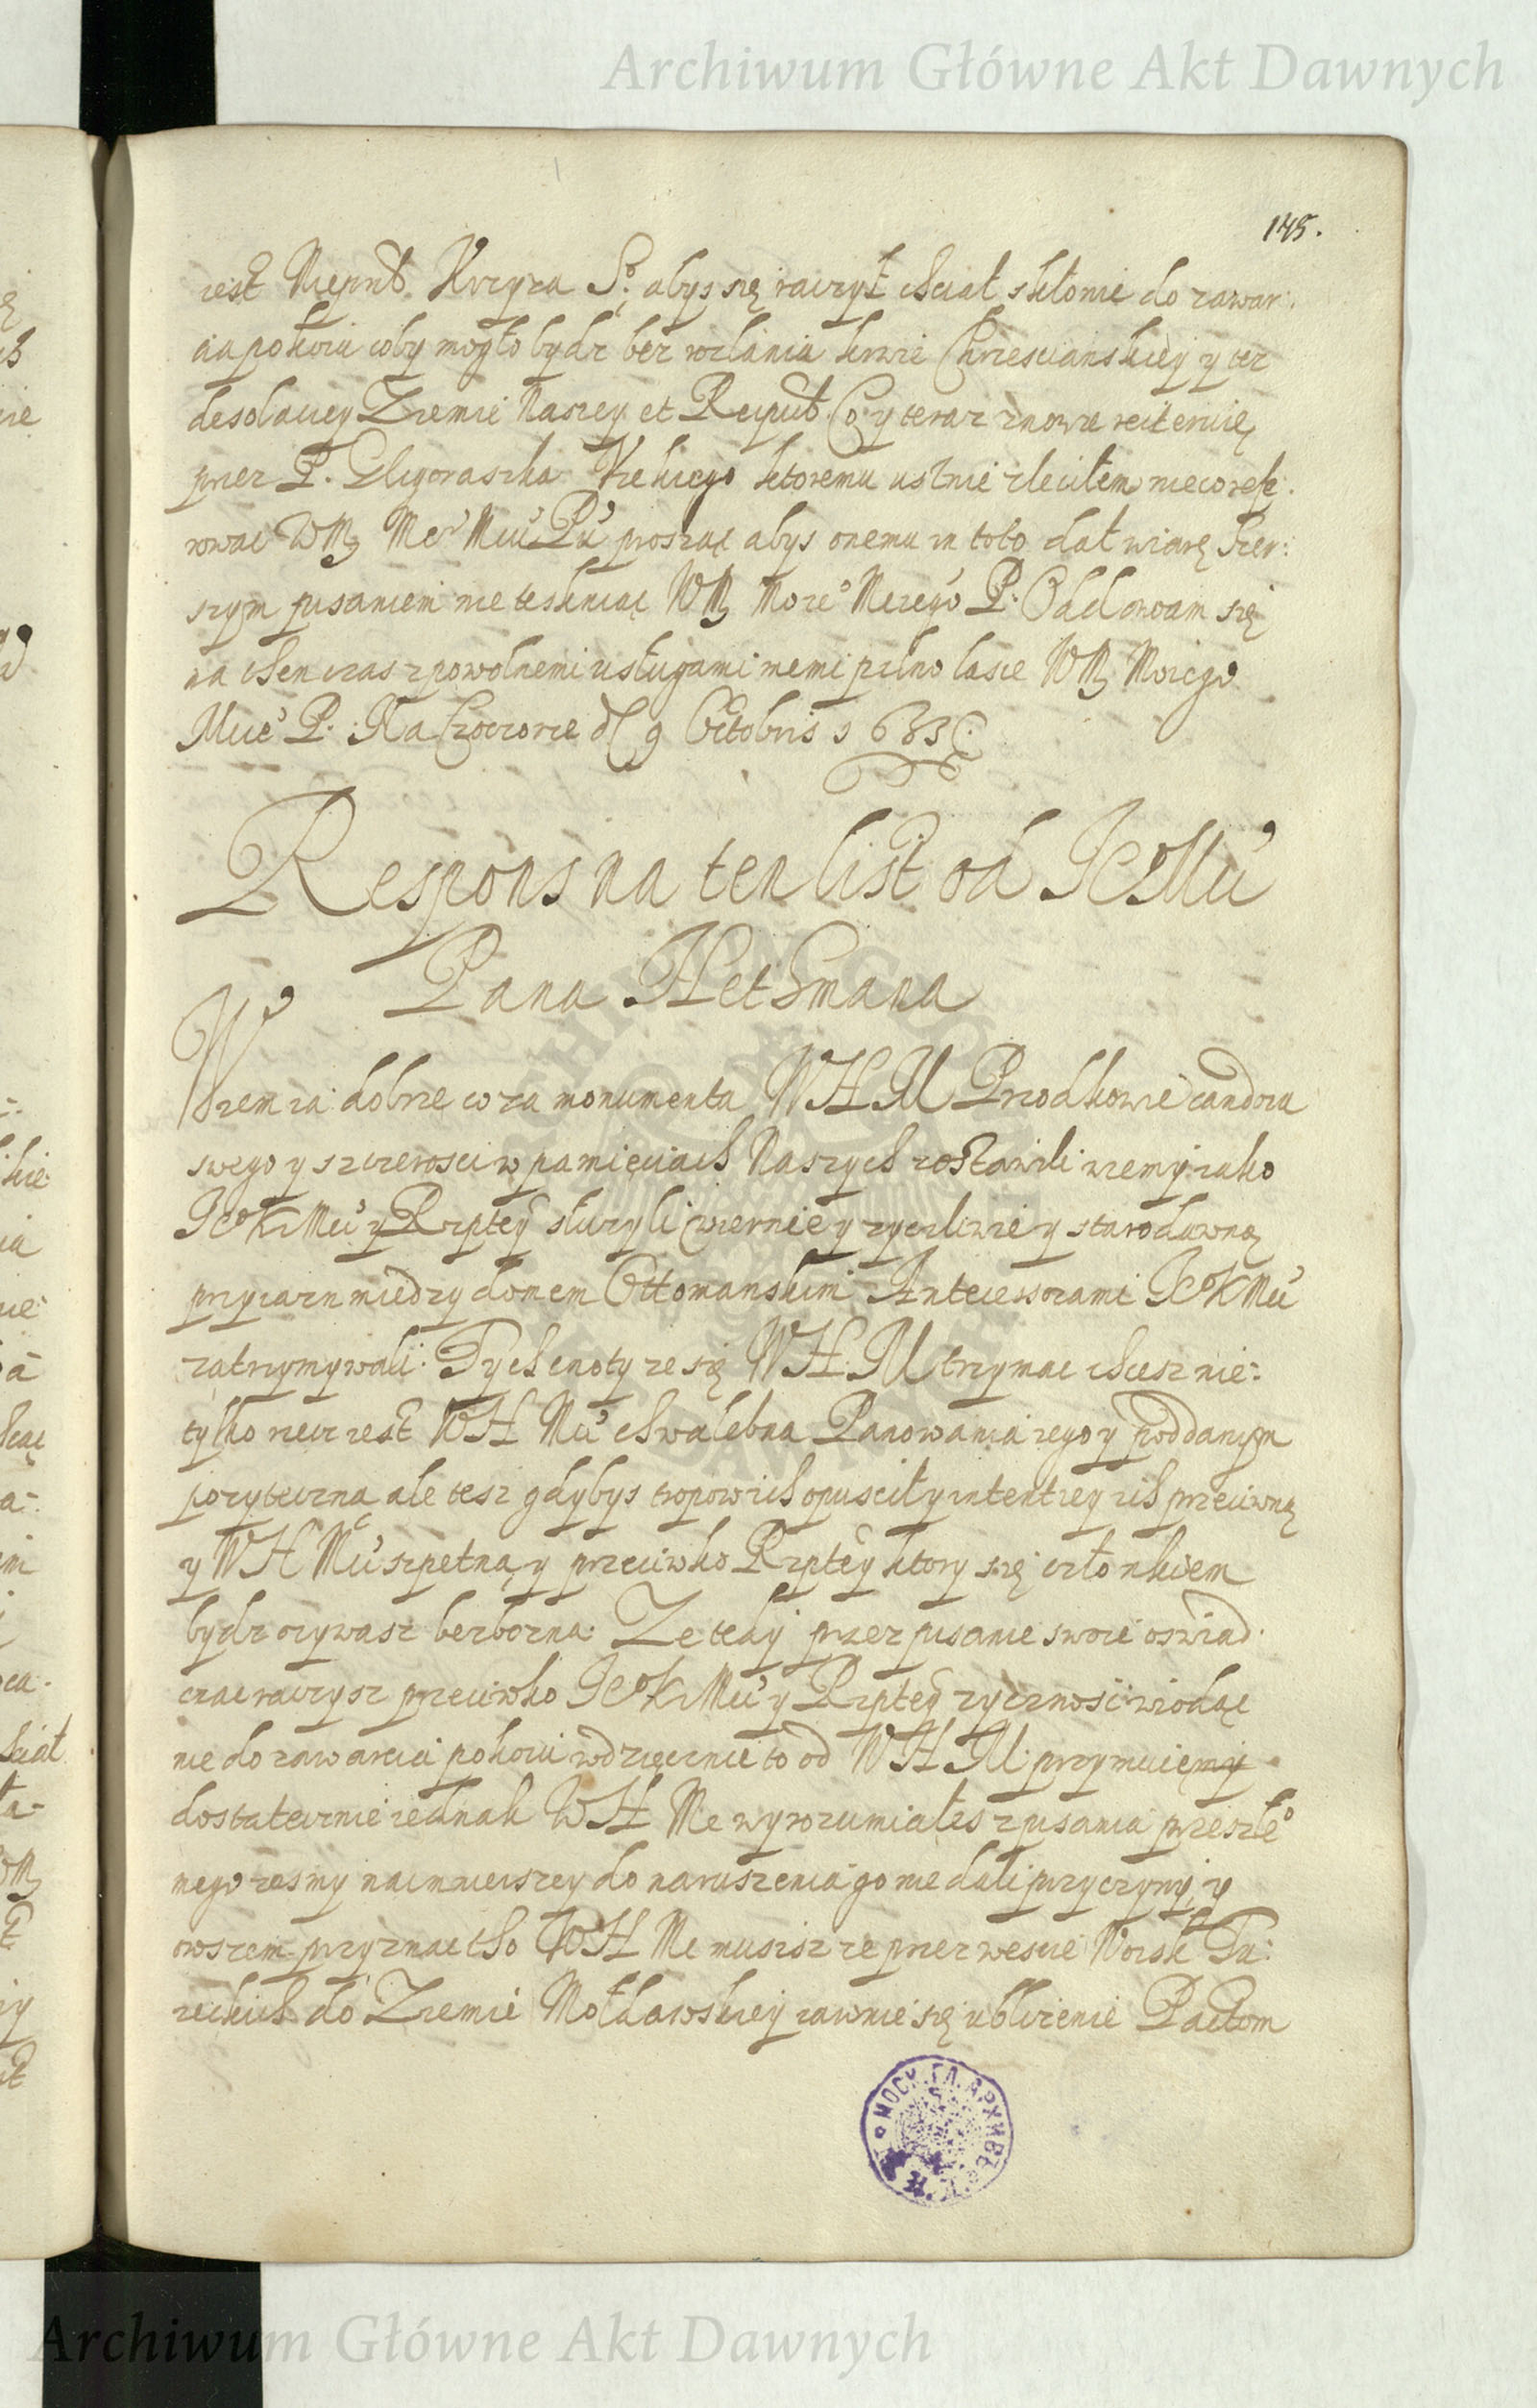 Archiwum Główne Akt Dawnych
145.
iest Krzyza S°. abys się raczył chciał skłonic do zawar:
cia pokoiu coby mogło bydz bez rozlania krwie Chrzescianskiey y tez
desolaciey Ziemie Naszey et Reipub. Co y teraz znowu reiteruię
przez P. ktoremu ustnie zleciłem nieco refe:
rowac WM Me° Mci° P° prosząc abys onemu in toto dał wiarę Szer:
szym pisaniem nie teskniąc WM Moie° Mczego P. Oddawam się
na then czas z powolnemi usługami memi pilno łasce WM Moiego
Mci° P. Na d 9 Octobris 1633
Respons na ten list od Je°Mći
Pana Hethmana
Wiem za dobrze co za monumenta WHM Przodkowie candoru
swego y szczerosci w pamięciach Naszych zostawili wiemy iako
Je° K Mći y Rzptey słuzyli wiernie y zyczliwie y starodawną
przyiazn miedzy domem Ottomanskim Antecessorami Je°KMći
zatrzymywali. Tych cnoty ze się WH.M trzymac chcesz nie:
tylko rzecz iest WH Mći chwalebna Panowania iego y poddanym
pozyteczna ale tesz gdybys tropow ich opuscił y intentiey ich przeciwną
y WH Mći szpetną y przeciwko Rzptey ktory się członkiem
bydz ozywasz bezbozna. Ze tedy przez pisanie swoie oswiad:
czac raczysz przeciwko Je°K Mći y Rzptey zycznosc wiodąc
nie do zawarcia pokoiu wdzięcznie to od WHM przymuiemy
dostatecznie iednak WH Me wyrozumiałes z pisania przeszłe°
mego zesmy naimnieiszey do naruszenia go nie dali przyczyny y
owszem przyznac tho WH Me musisz ze przez wescie Woisk Tu:
reckich do Ziemie Mołdawskiey iawnie się ubliżenie Pactom
МОСК. ГЛ. АРХИВЪ
Archiwum Główne Akt Dawnych